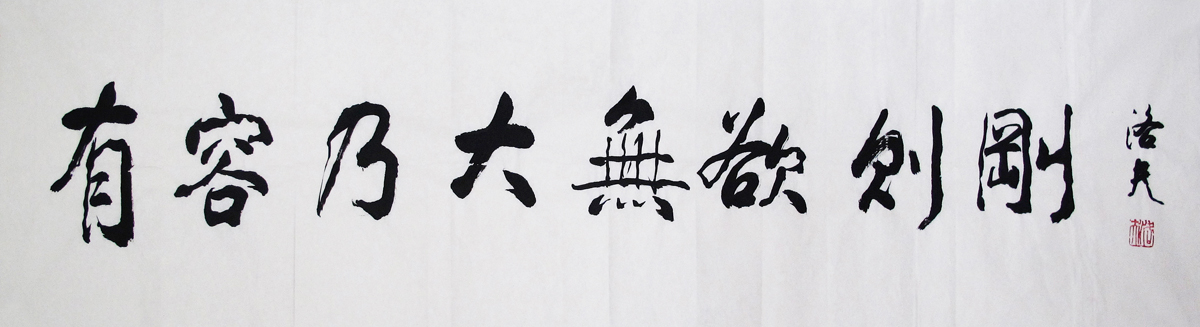 有容乃大無欲則剛
洛夫